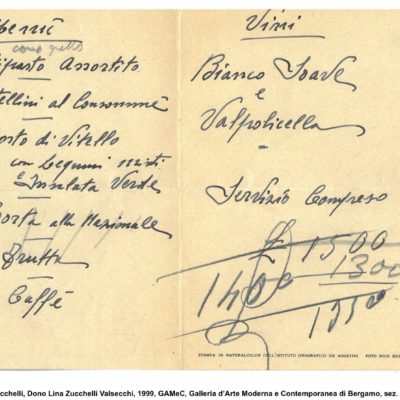 compreso
Antipasto Assortito
Tortellini al Consommé
Arrosto di Vitello
con Legumi misti
e Insalata Verde
Torta alla Nazionale
Frutta
Caffè
Vini
Bianco Soave
e
Valpolicella
Servizio Compreso
1500
1300
1400
1350
STAMPA IN NATURALCOLOR DELL'ISTITUTO GEOGRAFICO DE AGOSTINI FOTO RICO
cchelli, Dono Lina Zucchelli Valsecchi, 1999, GAMeC, Galleria d'Arte Moderna e Contemporanea di Bergamo, sez.